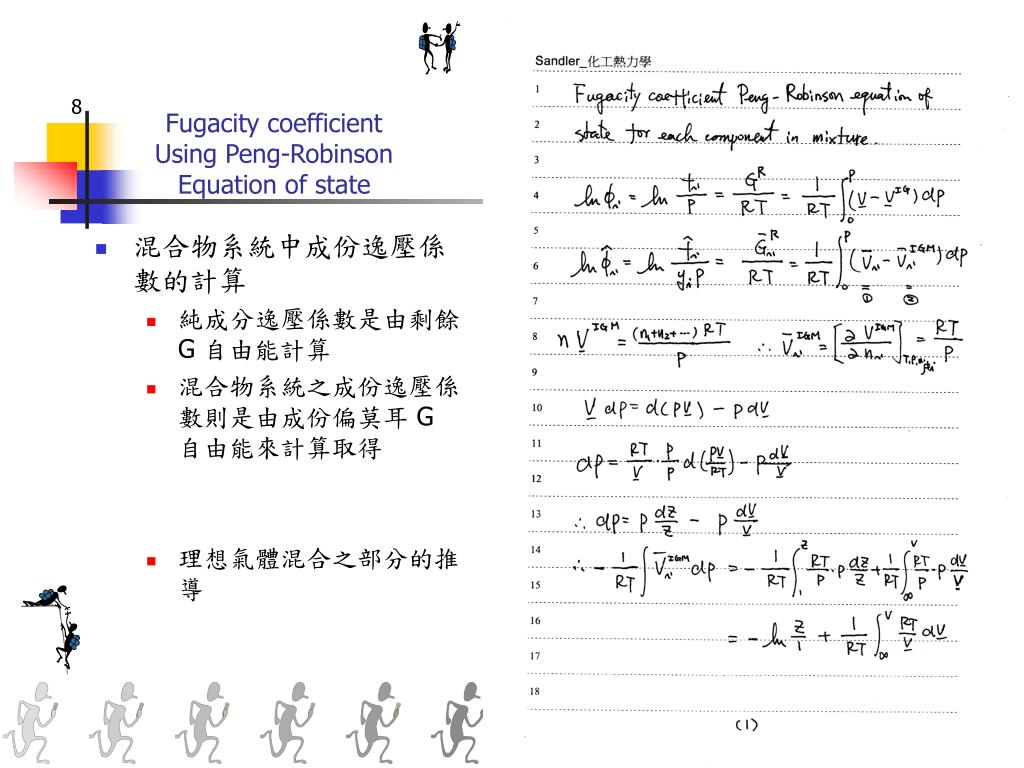 8
Fugacity coefficient
Using Peng-Robinson
Equation of state
混合物系統中成份逸壓係
數的計算
純成分逸壓係數是由剩餘
G 自由能計算
混合物系統之成份逸壓係
數則是由成份偏莫耳 G
自由能來計算取得
理想氣體混合之部分的推
導
Sandler_化工熱力學
1 Fugacity coefficient Peng-Robinson equation of
2 state for each component in mixture.
3
4 ln ϕᵢ = ln fᵢ/P = G^R/RT = 1/RT ∫₀^P (V̲ − V̲^IG) dP
5
6 ln ϕ̂ᵢ = ln f̂ᵢ/(yᵢP) = Ḡᵢ^R/RT = 1/RT ∫₀^P (V̄ᵢ − V̄ᵢ^IGM) dP
① ②
7
8 n V̲^IGM = (n₁+n₂+⋯)RT/P ∴ V̄ᵢ^IGM = [∂V^IGM/∂nᵢ]_T,P,n_j≠i = RT/P
9
10 V̲ dP = d(PV̲) − P dV̲
11
12 dP = RT/V̲ · P/P d(PV̲/RT) − P dV̲/V̲
13 ∴ dP = P dZ/Z − P dV̲/V̲
14
15 ∴ − 1/RT ∫ V̄ᵢ^IGM dP = − 1/RT ∫₁^Z RT/P · P dZ/Z + 1/RT ∫_∞^V RT/P · P dV̲/V̲
16 = − ln Z/1 + 1/RT ∫_∞^V RT/V̲ dV̲
17
18
(1)